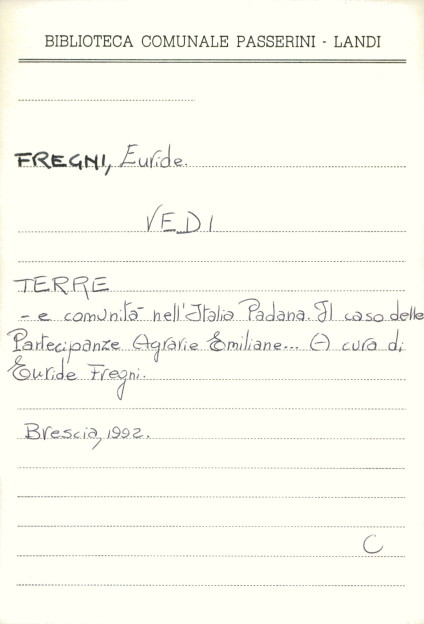 BIBLIOTECA COMUNALE PASSERINI - LANDI
FREGNI, Euride.
VEDI
TERRE
- e comunità nell'Italia Padana. Il caso delle
Partecipanze Agrarie Emiliane... (-) cura di
Euride Fregni.
Brescia, 1992.
C